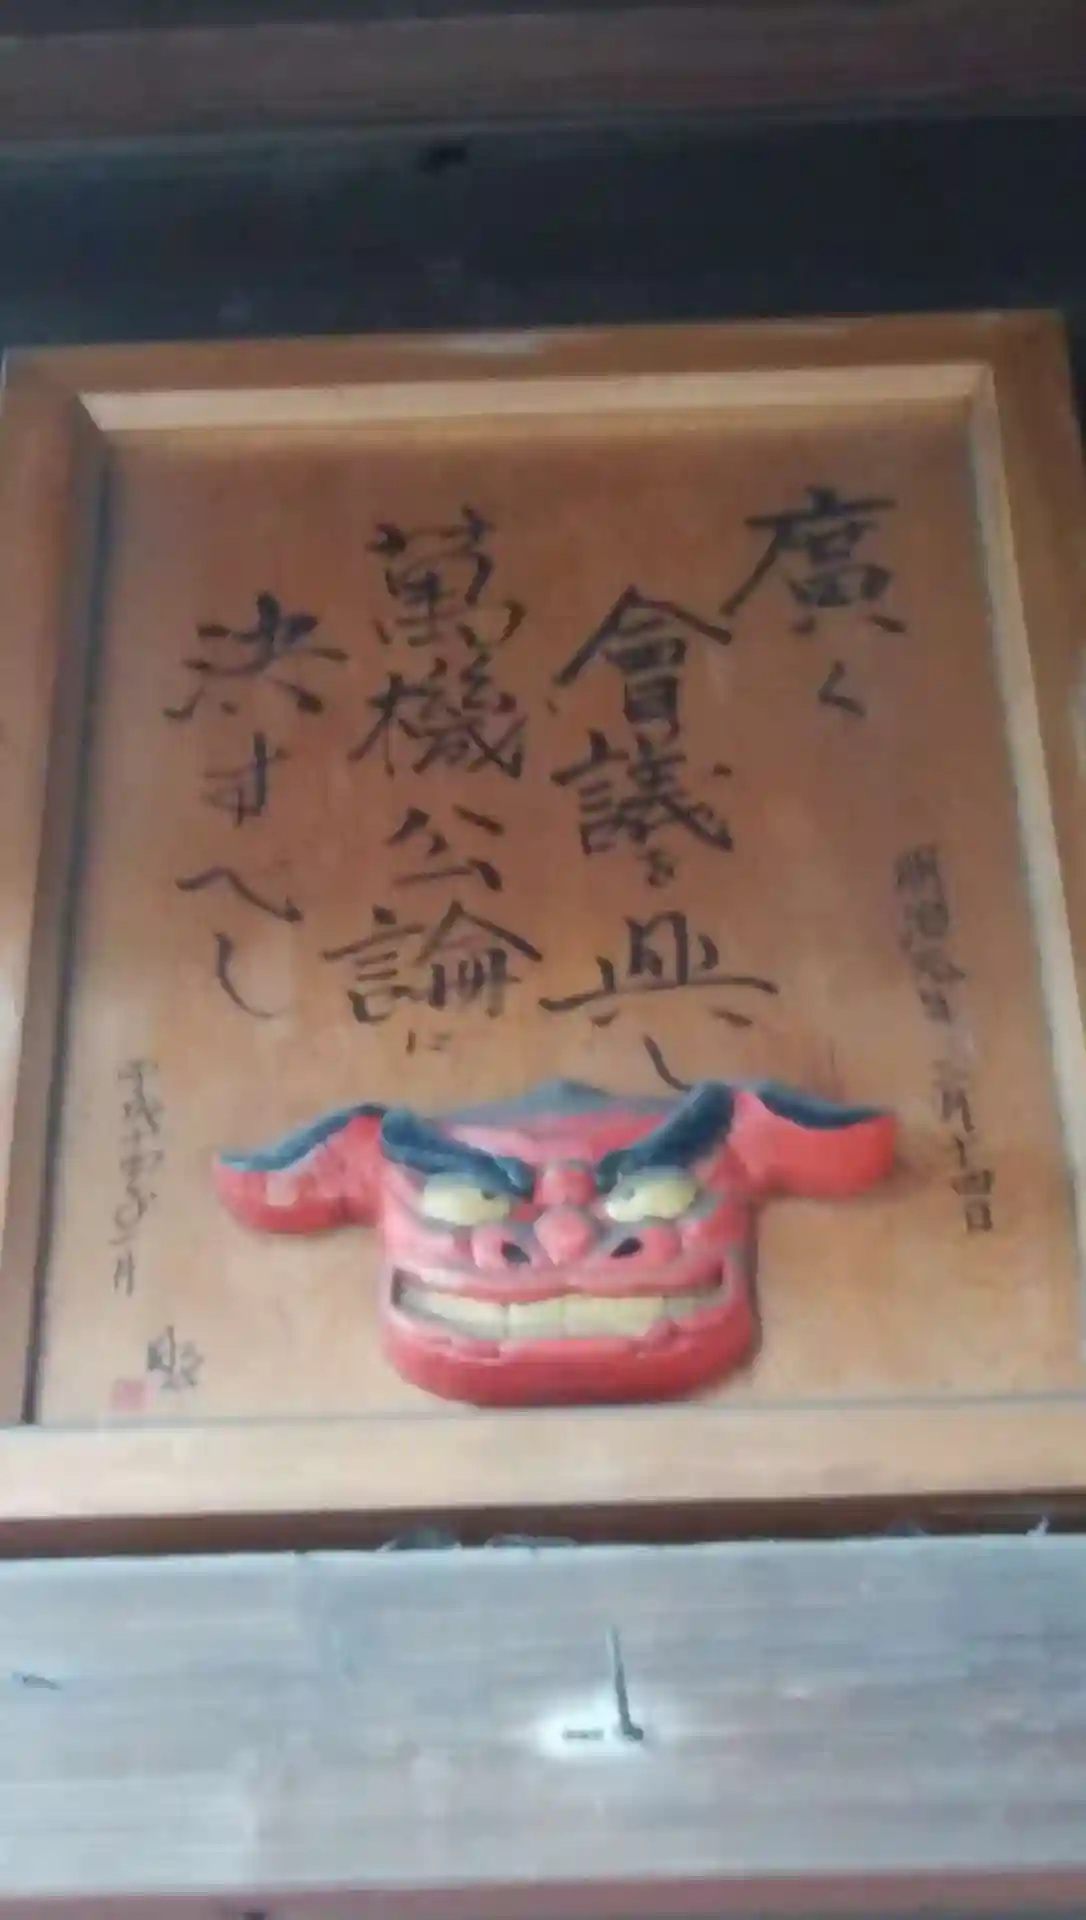 廣く
會議を興し
萬機公論に
決すべし
明治元年三月十四日